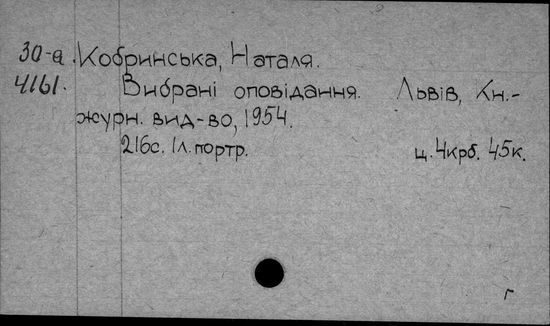 30-а Кобринська, Наталя.
4161. Вибрані оповідання. Львів, Кн.-
журн. вид-во, 1954.
216с. 1л. портр. ц. 4крб. 45к.
г